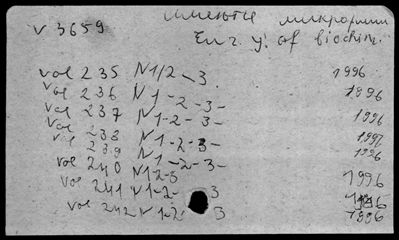 v 3659
имеются микроформы
Eur. y. of biochim.
vol 235 N 1/2-3 1996
vol 236 N 1-2-3- 1996
vol 237 N 1-2-3- 1996
vol 238 N 1-2-3- 1996
vol 239 N 1-2-3- 1996
vol 240 N 1-2-3 1996
vol 241 N 1-2- 3 1996
vol 242 N 1-2- 3 1996